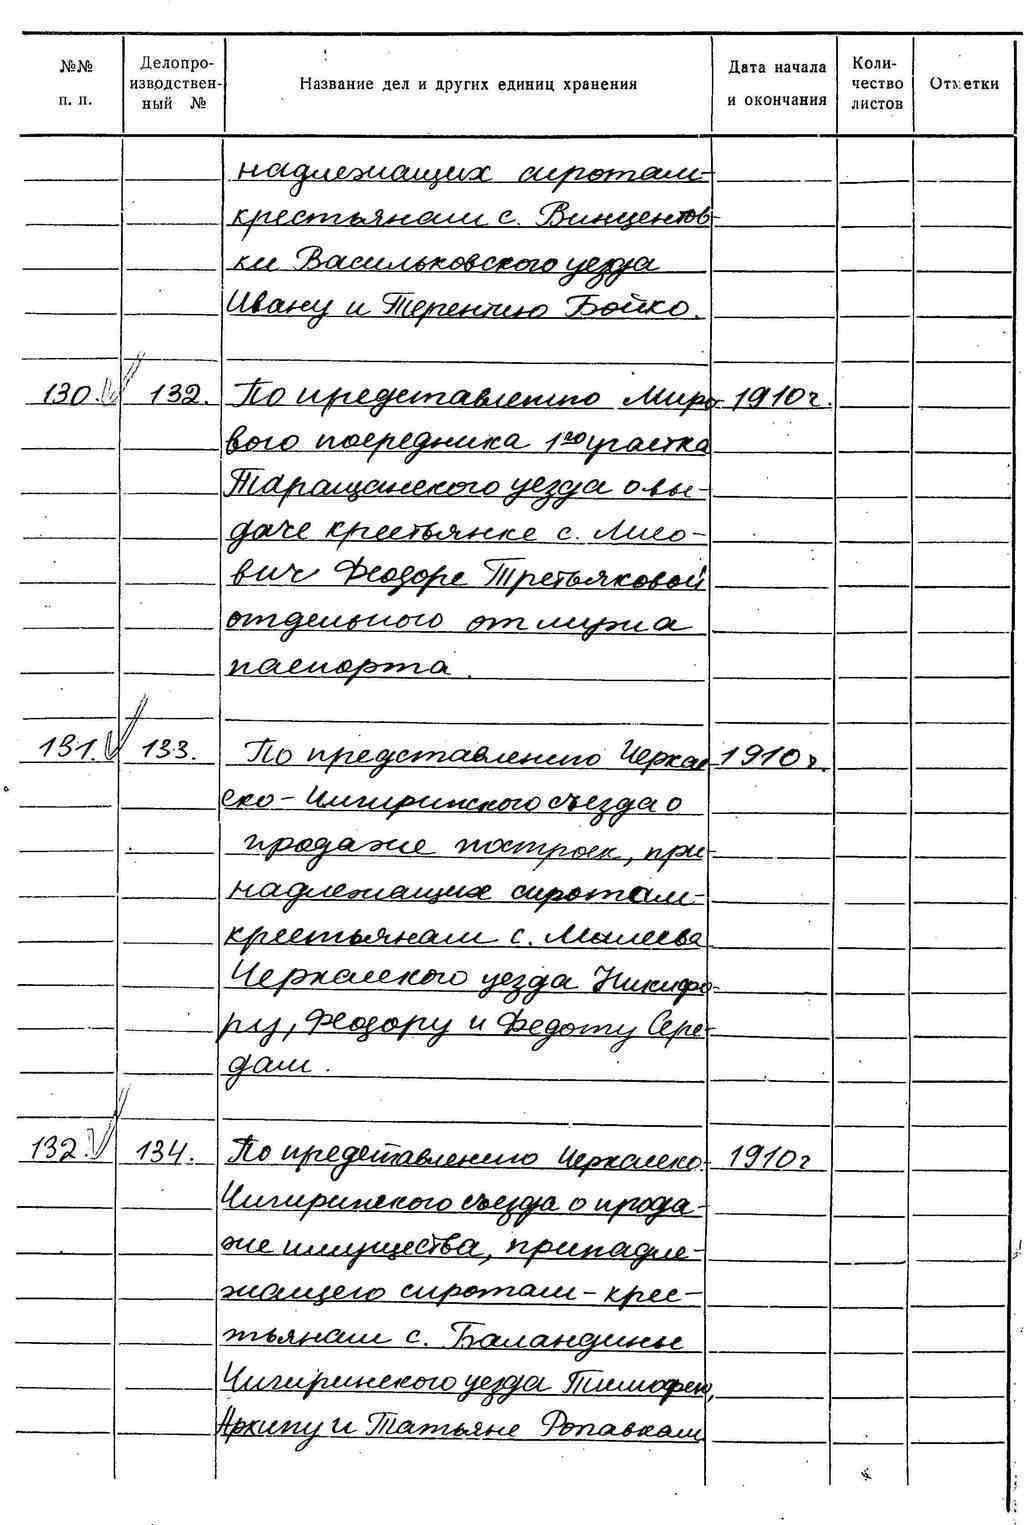 №№ п. п. Делопро- изводствен- ный № Название дел и других единиц хранения Дата начала и окончания Коли- чество листов Отметки
надлежащих сиротам-
крестьянам с. Винцентов-
ки Васильковского уезда
Ивану и Терентию Бойко.
130. 132. По представлению Миро- 1910 г.
вого посредника 1го участка
Таращанского уезда о вы-
даче крестьянке с. Лисо-
вич Феодоре Третьяковой
отдельного от мужа
паспорта.
131. 133. По представлению Черкас- 1910 г.
ско-Чигиринского съезда о
продаже построек, при-
надлежащих сиротам-
крестьянам с. Млиева
Черкасского уезда Никифо-
ру, Феодору и Федоту Сере-
дам.
132. 134. По представлению Черкасско- 1910 г
Чигиринского съезда о прода-
же имущества, принадле-
жащего сиротам-крес-
тьянам с. Баландины
Чигиринского уезда Тимофею,
Архипу и Татьяне